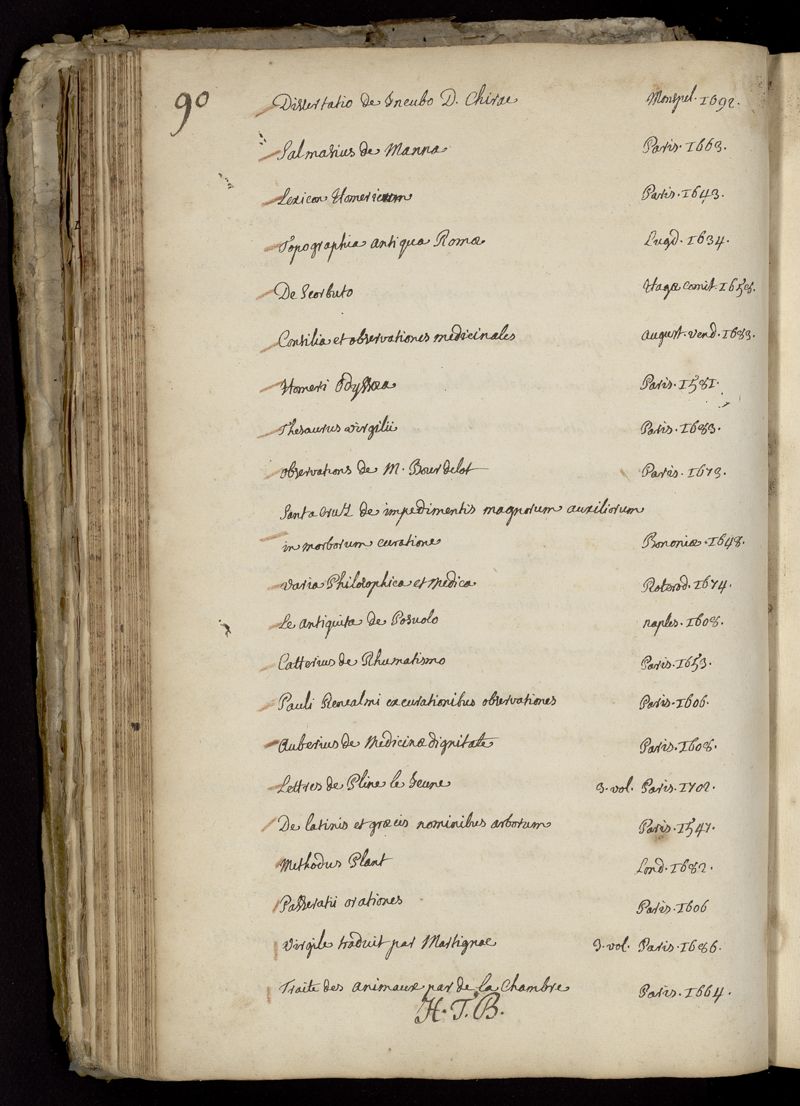 90
Dissertatio de Incubo D. Chirac Monspel. 1692.
Salmasius de Manna Paris. 1663.
Lexicon Homericum Paris. 1643.
Topographia antiqua Romæ Lugd. 1634.
De Scorbuto Hagæ comit. 1658.
Consilia et observationes medicinales august. vend. 1683.
Homeri Odyssæa Paris. 1581.
Thesaurus virgilii Paris. 1683.
observations de M. Bourdelot Paris. 1673.
Santa Cruz de impedimentis magnorum auxiliorum
in morborum curatione Bononiæ. 1648.
varia Philosophica et Medica Roterod. 1674.
Le antiquita de Posuolo naples. 1608.
Catterius de Rhumatismo Paris. 1653.
Pauli Renealmi ex curationibus observationes Paris. 1606.
Auberius de Medicinæ dignitate Paris. 1608.
Lettres de Pline le Jeune 3. vol. Paris. 1702.
De latinis et græcis nominibus arborum Paris. 1547.
Methodus Plant Lond. 1682.
Passeratii orationes Paris. 1606
Virgile traduit par Martignac 3. vol. Paris. 1686.
Traite des animaux par de la Chambre Paris. 1664.
H. T. B.